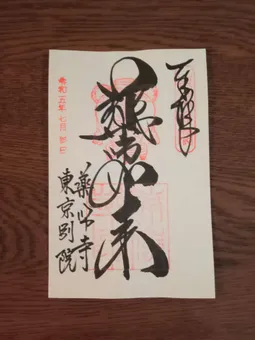 奉拝
薬師如来
薬師寺
東京別院
令和五年七月